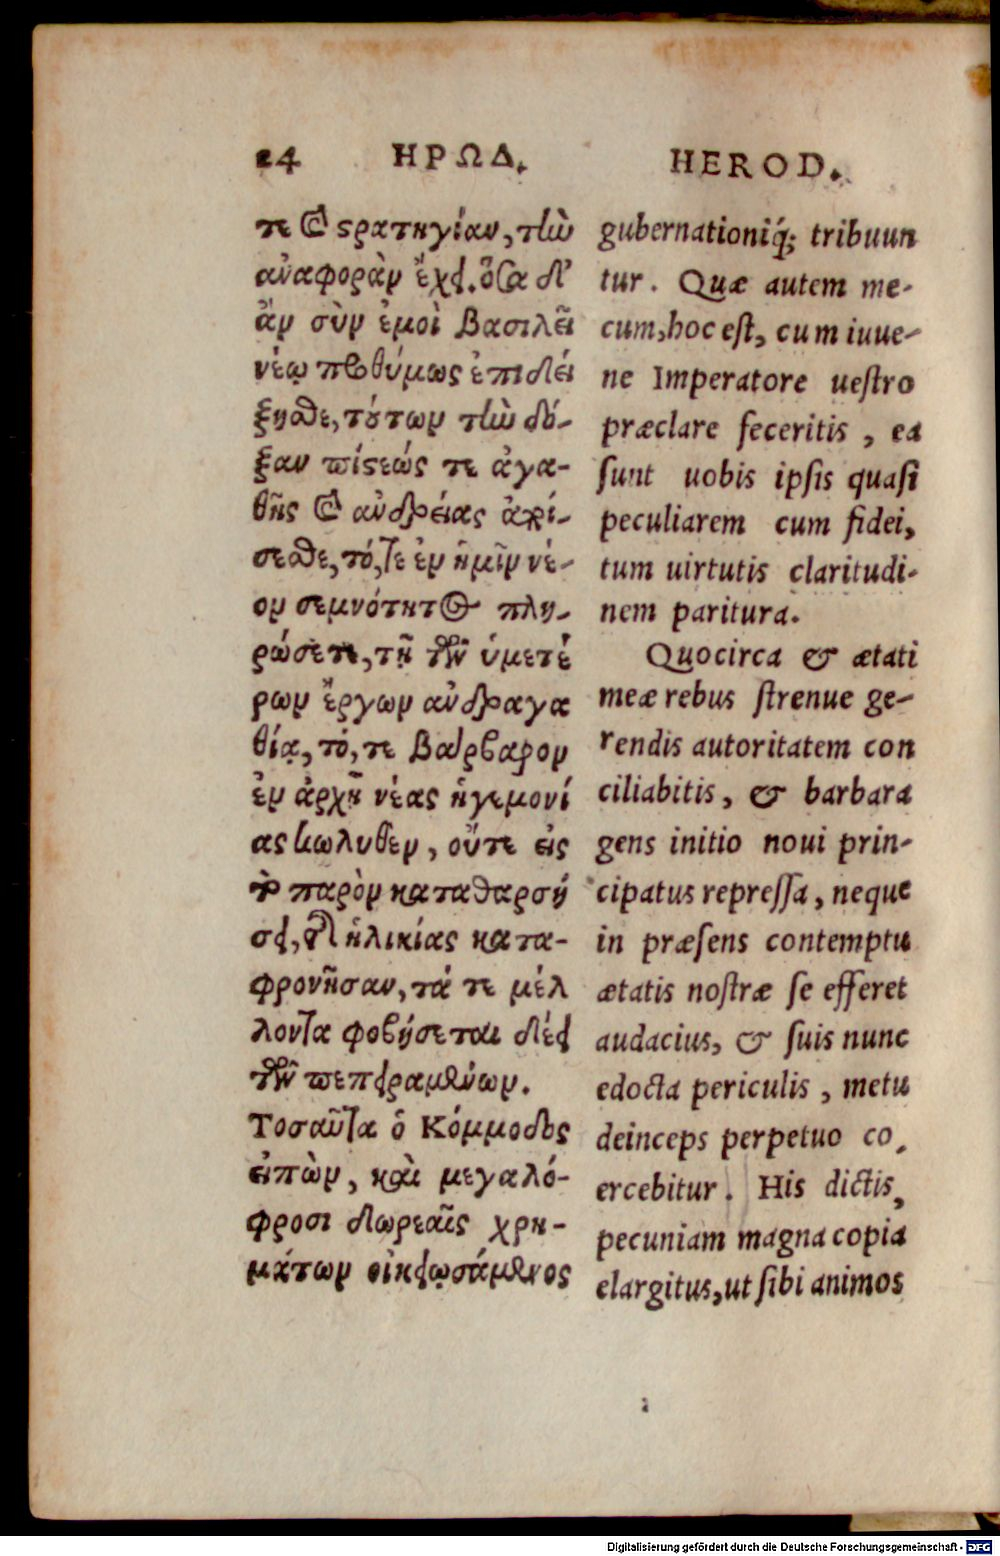 24 ΗΡΩΔ. HEROD.
τε καὶ στρατηγίαν, τὴν
ἀναφορὰν ἔχει. ὅσα δ'
ἂν σὺν ἐμοὶ βασιλεῖ
νέῳ προθύμως ἐπιδεί
ξησθε, τούτων τὴν δό-
ξαν πίστεώς τε ἀγα-
θῆς καὶ ἀνδρείας ἀποί-
σεσθε, τό, τε ἐν ἡμῖν νέ-
ον σεμνότητος πλη-
ρώσετε, τῇ τῶν ὑμετέ
ρων ἔργων ἀνδραγα
θίᾳ, τό, τε βάρβαρον
ἐν ἀρχῇ νέας ἡγεμονί
ας κωλυθὲν, οὔτε εἰς
τὸ παρὸν καταθαρσή
σει, τῆς ἡλικίας κατα-
φρονῆσαν, τά τε μέλ
λοντα φοβήσεται δέει
τῶν πεπειραμένων.
Τοσαῦτα ὁ Κόμμοδος
εἰπὼν, καὶ μεγαλό-
φροσι δωρεαῖς χρη-
μάτων οἰκειωσάμενος
gubernationiq́; tribuun
tur. Quæ autem me-
cum, hoc est, cum iuue-
ne Imperatore uestro
præclare feceritis, ea
sunt uobis ipsis quasi
peculiarem cum fidei,
tum uirtutis claritudi-
nem paritura.
Quocirca & ætati
meæ rebus strenue ge-
rendis autoritatem con
ciliabitis, & barbara
gens initio noui prin-
cipatus repressa, neque
in præsens contemptu
ætatis nostræ se efferet
audacius, & suis nunc
edocta periculis, metu
deinceps perpetuo co,
ercebitur. His dictis,
pecuniam magna copia
elargitus, ut sibi animos
Digitalisierung gefördert durch die Deutsche Forschungsgemeinschaft - DFG